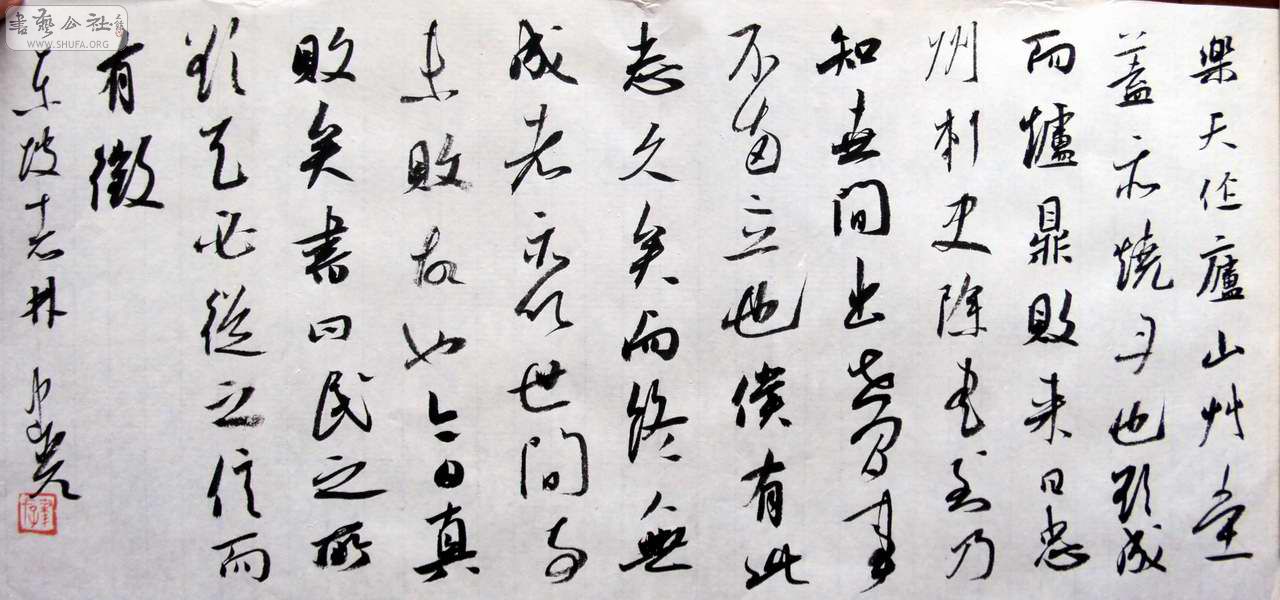 樂天作廬山艸堂
蓋亦燒丹也欲成
而爐鼎敗来日忠
州刺史除書到乃
知世間出世間事
不兩立也僕有此
志久矣而終無
成者亦以世間事
未敗故也今日真
敗矣書曰民之所
欲天必從之信而
有徵
東坡志林
書藝公社
WWW.SHUFA.ORG